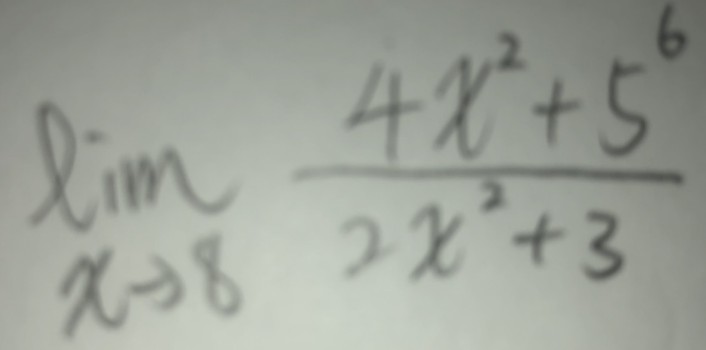 lim x→8 (4x²+5⁶)/(2x²+3)